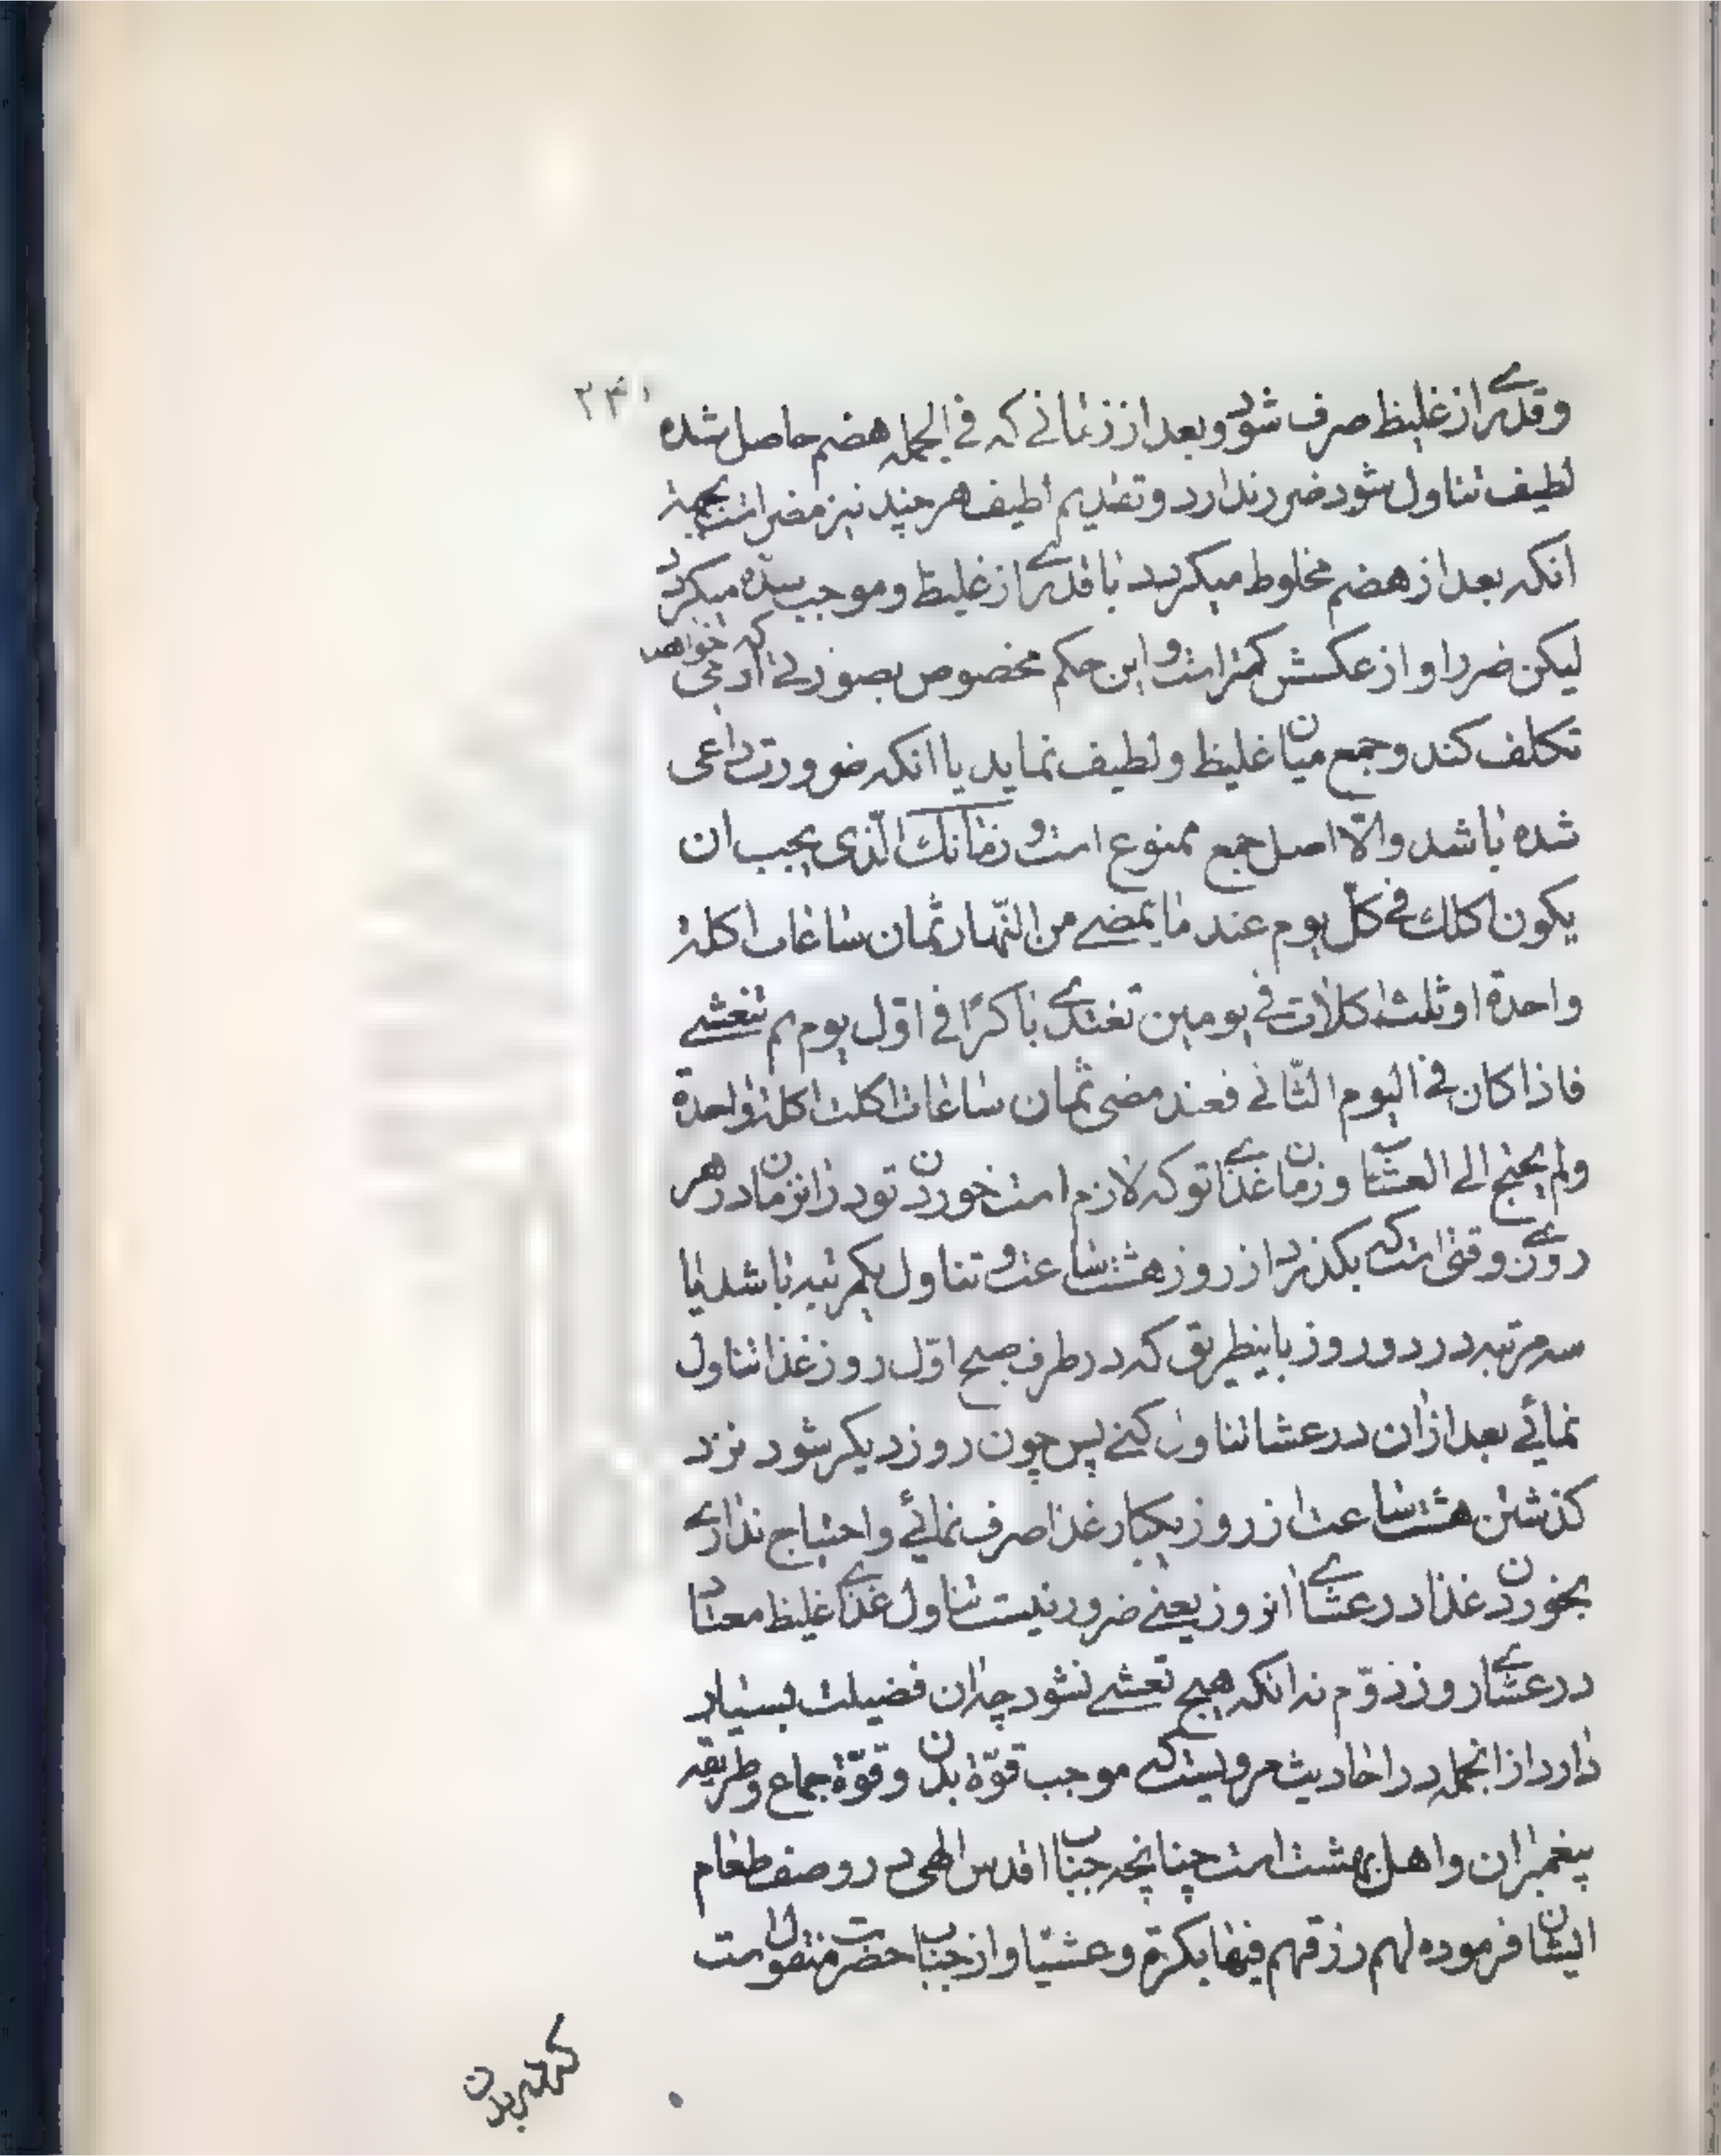 ۲۴۱
وقدری از غلیظ صرف شود و بعد از زمانی که فی الجمله هضم حاصل شده
لطیف تناول شود ضرر ندارد و تقدیم لطیف هر چند نیز مضر است بجهة
انکه بعد از هضم مخلوط میکردد با قدری از غلیظ و موجب سدّه میکردد
لیکن ضرر او از عکسش کمتر است و این حکم مخصوص بصورتی که ادمی خواهد
تکلف کند و جمع میان غلیظ و لطیف نماید یا انکه ضرورت داعی
شده باشد والّا اصل جمع ممنوع است و زمانک الّذی یجب ان
یکون اکلک فی کلّ یوم عند ما یمضی من النّهار ثمان ساعات اکلة
واحدة او ثلث اکلات فی یومین تغتدی باکرًا فی اوّل یوم ثم تتعشی
فاذا کان فی الیوم الثّانی فعند مضی ثمان ساعات اکلت اکلة واحدة
ولم یحتج الی العشا و زمان غذای تو که لازم است خوردن تو در ان زمان در هر
روزی ان وقتی است که بکذرد از روز هشت ساعت و تناول یکمرتبه باشد یا
سه مرتبه در دو روز باینطریق که در طرف صبح اوّل روز غذا تناول
نمائی بعد از ان در عشا تناول کنی پس چون روز دیکر شود نزد
کذشتن هشت ساعت از روز یکبار غذا صرف نمائی و احتیاج نداری
بخوردن غذا در عشای انروز یعنی ضرور نیست تناول غذای غلیظ معتاد
در عشای روز دوّم نه انکه هیچ تعشی نشود چه ان فضیلت بسیار
دارد از انجمله در احادیث مرویست که موجب قوّة بدن و قوّة جماع و طریقه
پیغمبران و اهل بهشت است چنانچه جناب اقدس الهی در وصف طعام
ایشان فرموده لهم رزقهم فیها بکرة و عشیّا و از جناب حضرت منقول است